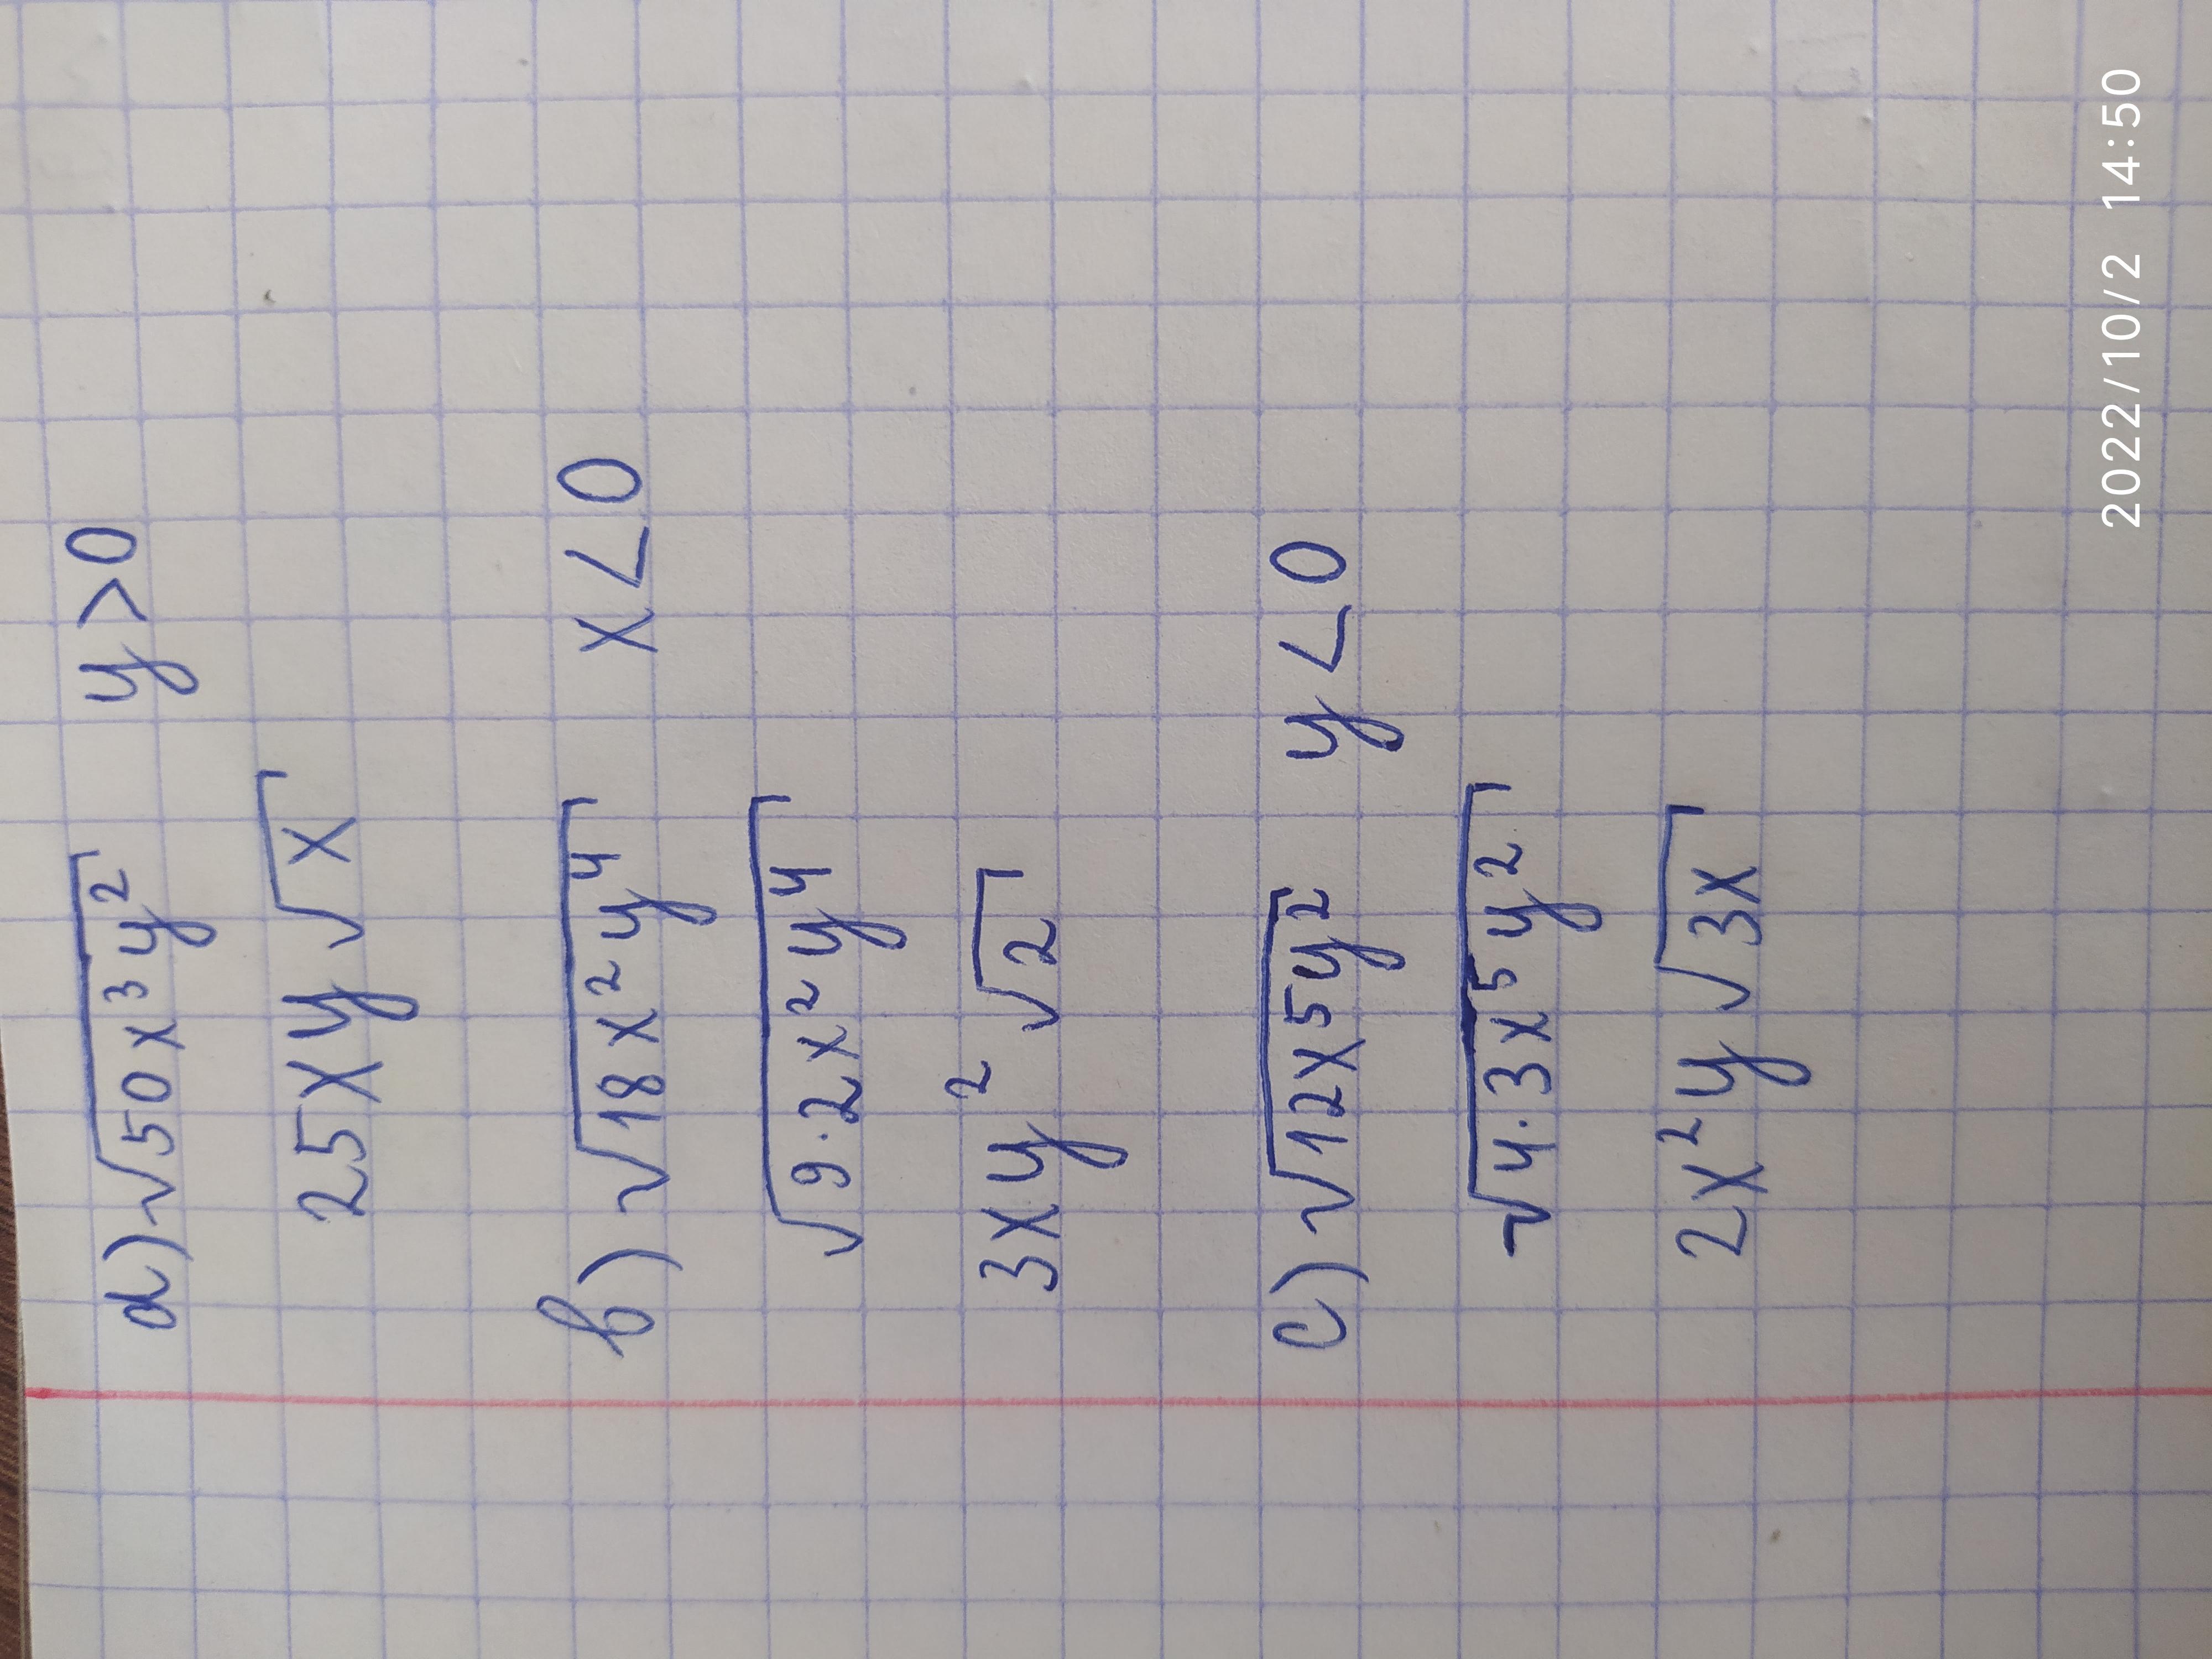 a) √50x³y² y>0
25xy√x
b) √18x²y⁴ x<0
√9·2x²y⁴
3xy²√2
c) √12x⁵y² y<0
√4·3x⁵y²
2x²y√3x
2022/10/2 14:50